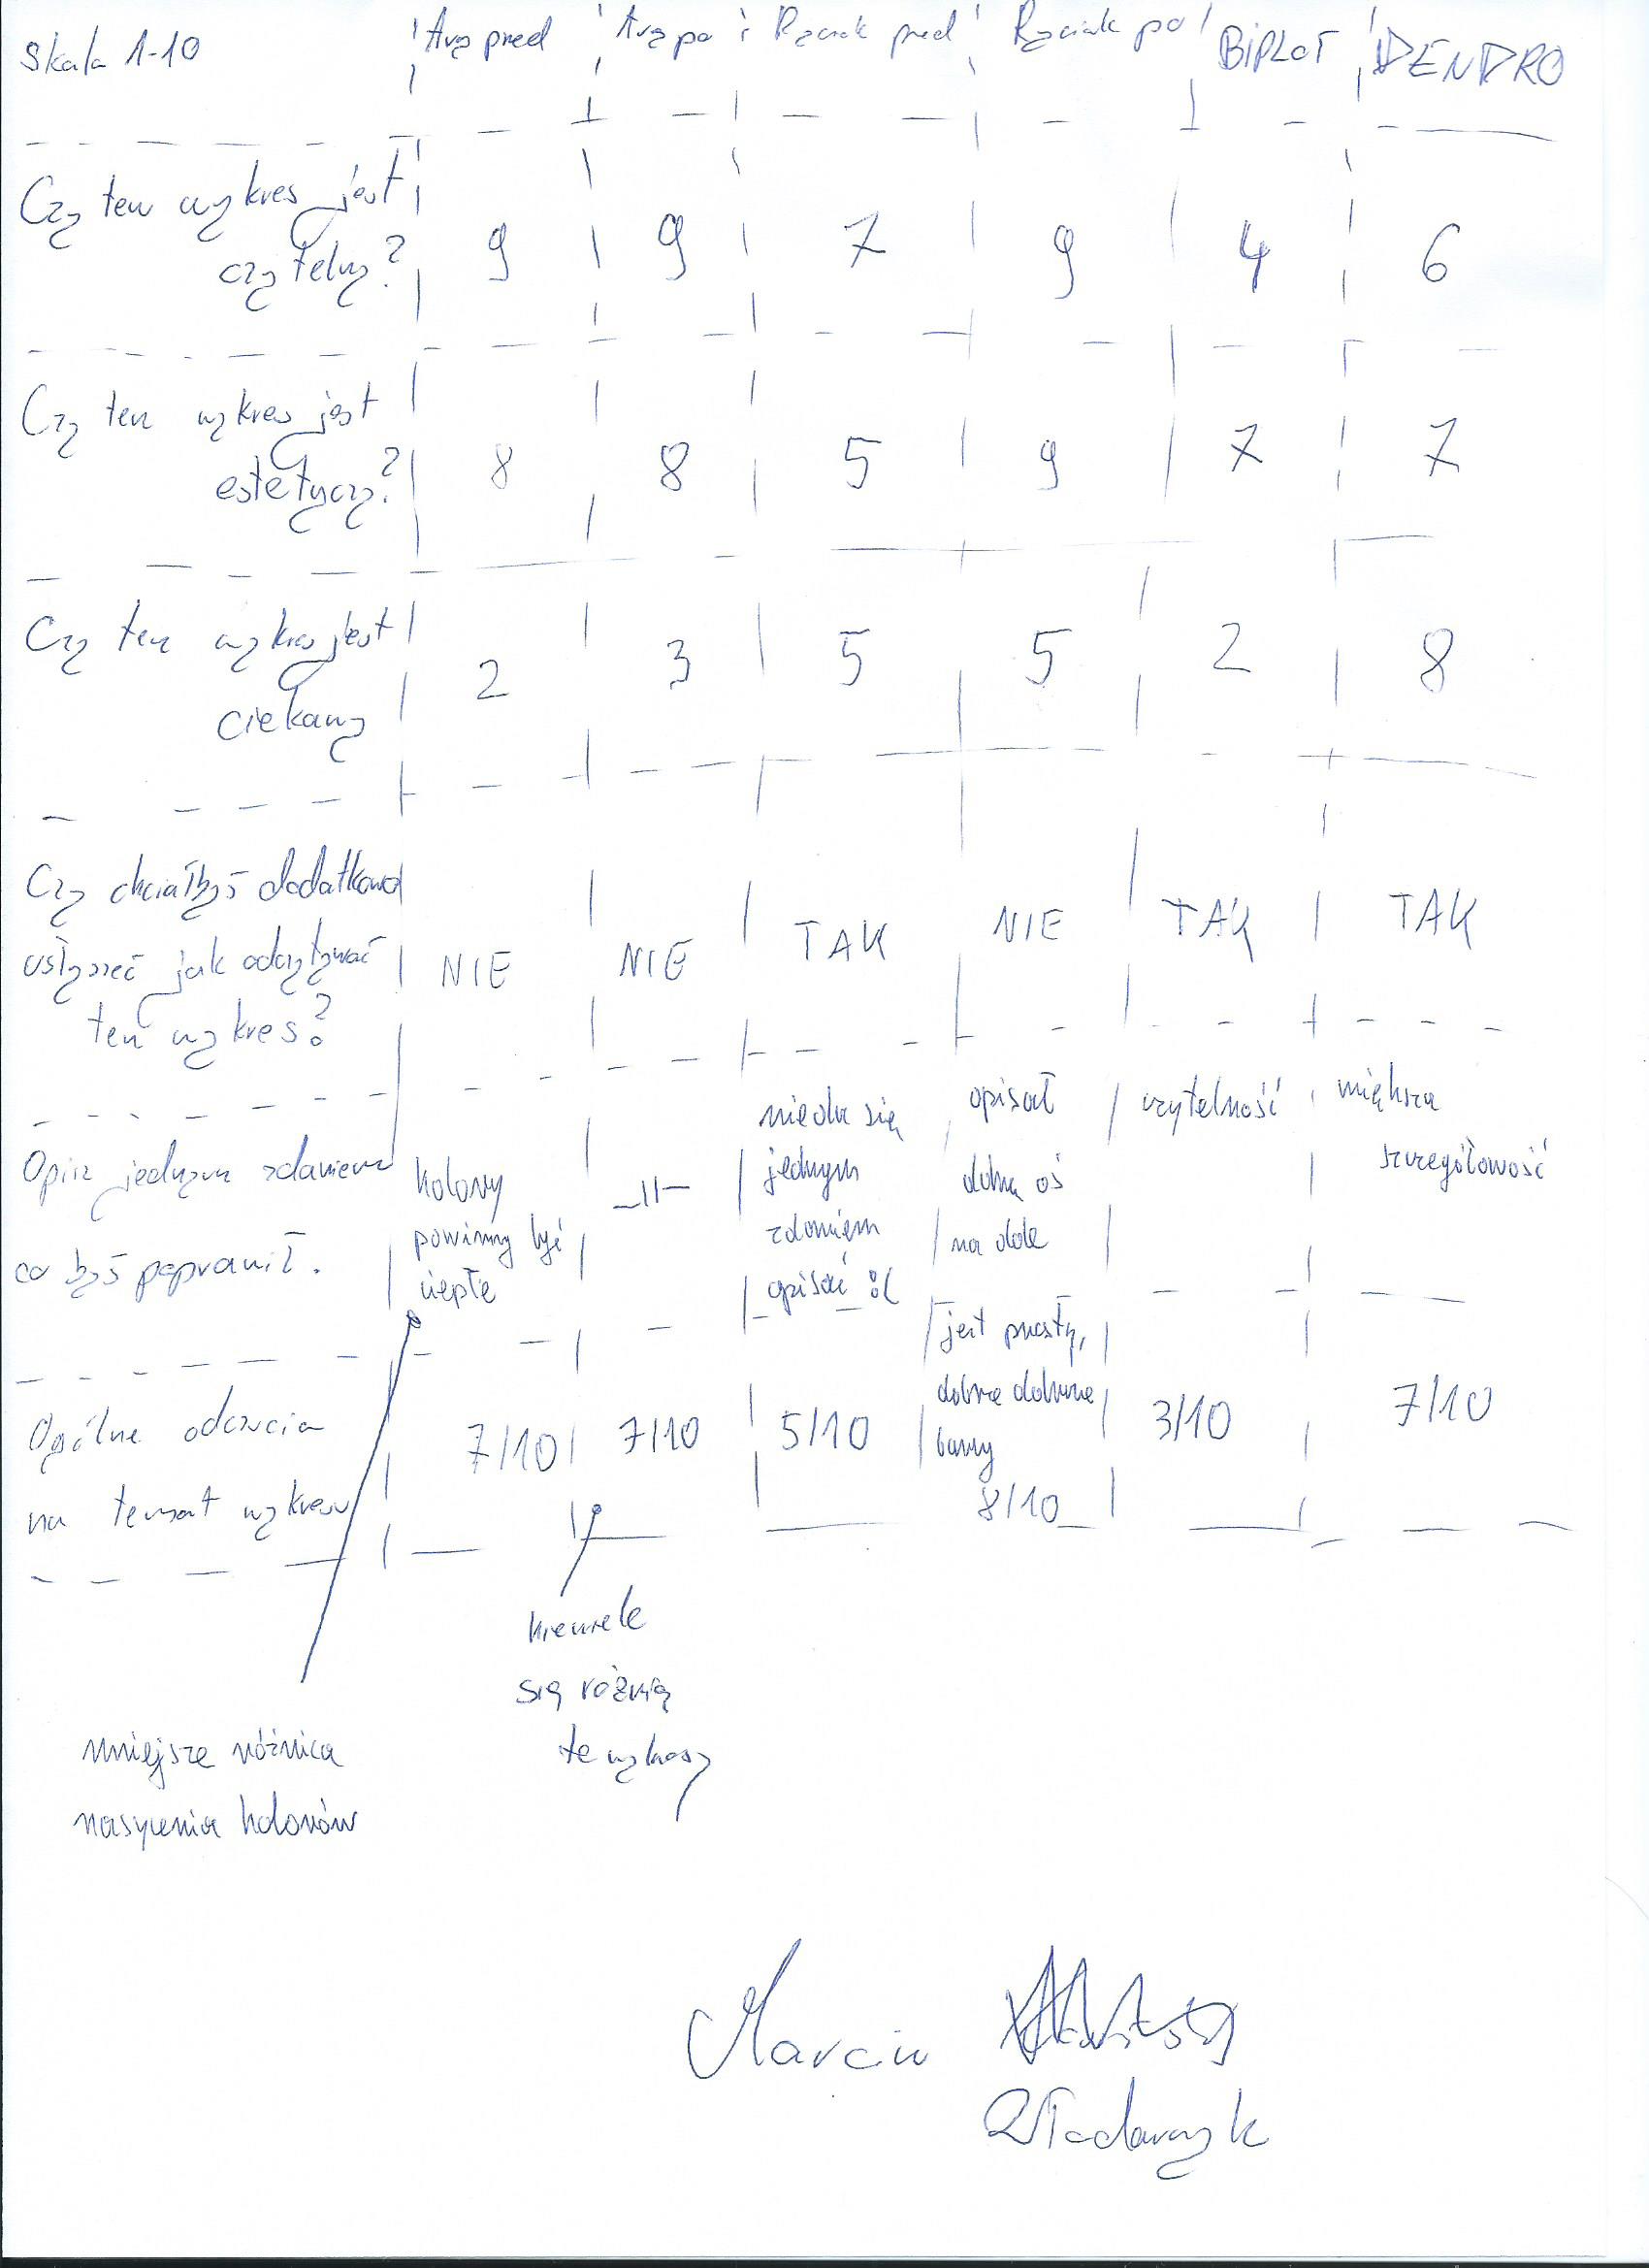 Skala 1-10 Arą pred Arą po Rączek pred Rączek po BIPLOT DENDRO
Czy ten wykres jest
czytelny? 9 9 7 9 4 6
Czy ten wykres jest
estetyczy? 8 8 5 9 7 7
Czy ten wykres jest
ciekawy 2 3 5 5 2 8
Czy chciałbyś dodatkowo
usłyszeć jak odczytywać
ten wykres? NIE NIE TAK NIE TAK TAK
Opisz jednym zdaniem
co byś poprawił.
kolory
powinny być
ciepłe
-11-
nie da się
jednym
zdaniem
opisać :(
opisał
dolną oś
na dole
czytelność
większa
szczegółowość
Ogólne odczucia
na temat wykresu
7/10 7/10 5/10
jest prosty,
dobrze dobrane
barwy
8/10
3/10 7/10
mniejsze różnica
nasycenia kolorów
niewiele
się różnią
te wykresy
Marcin
Władarczyk